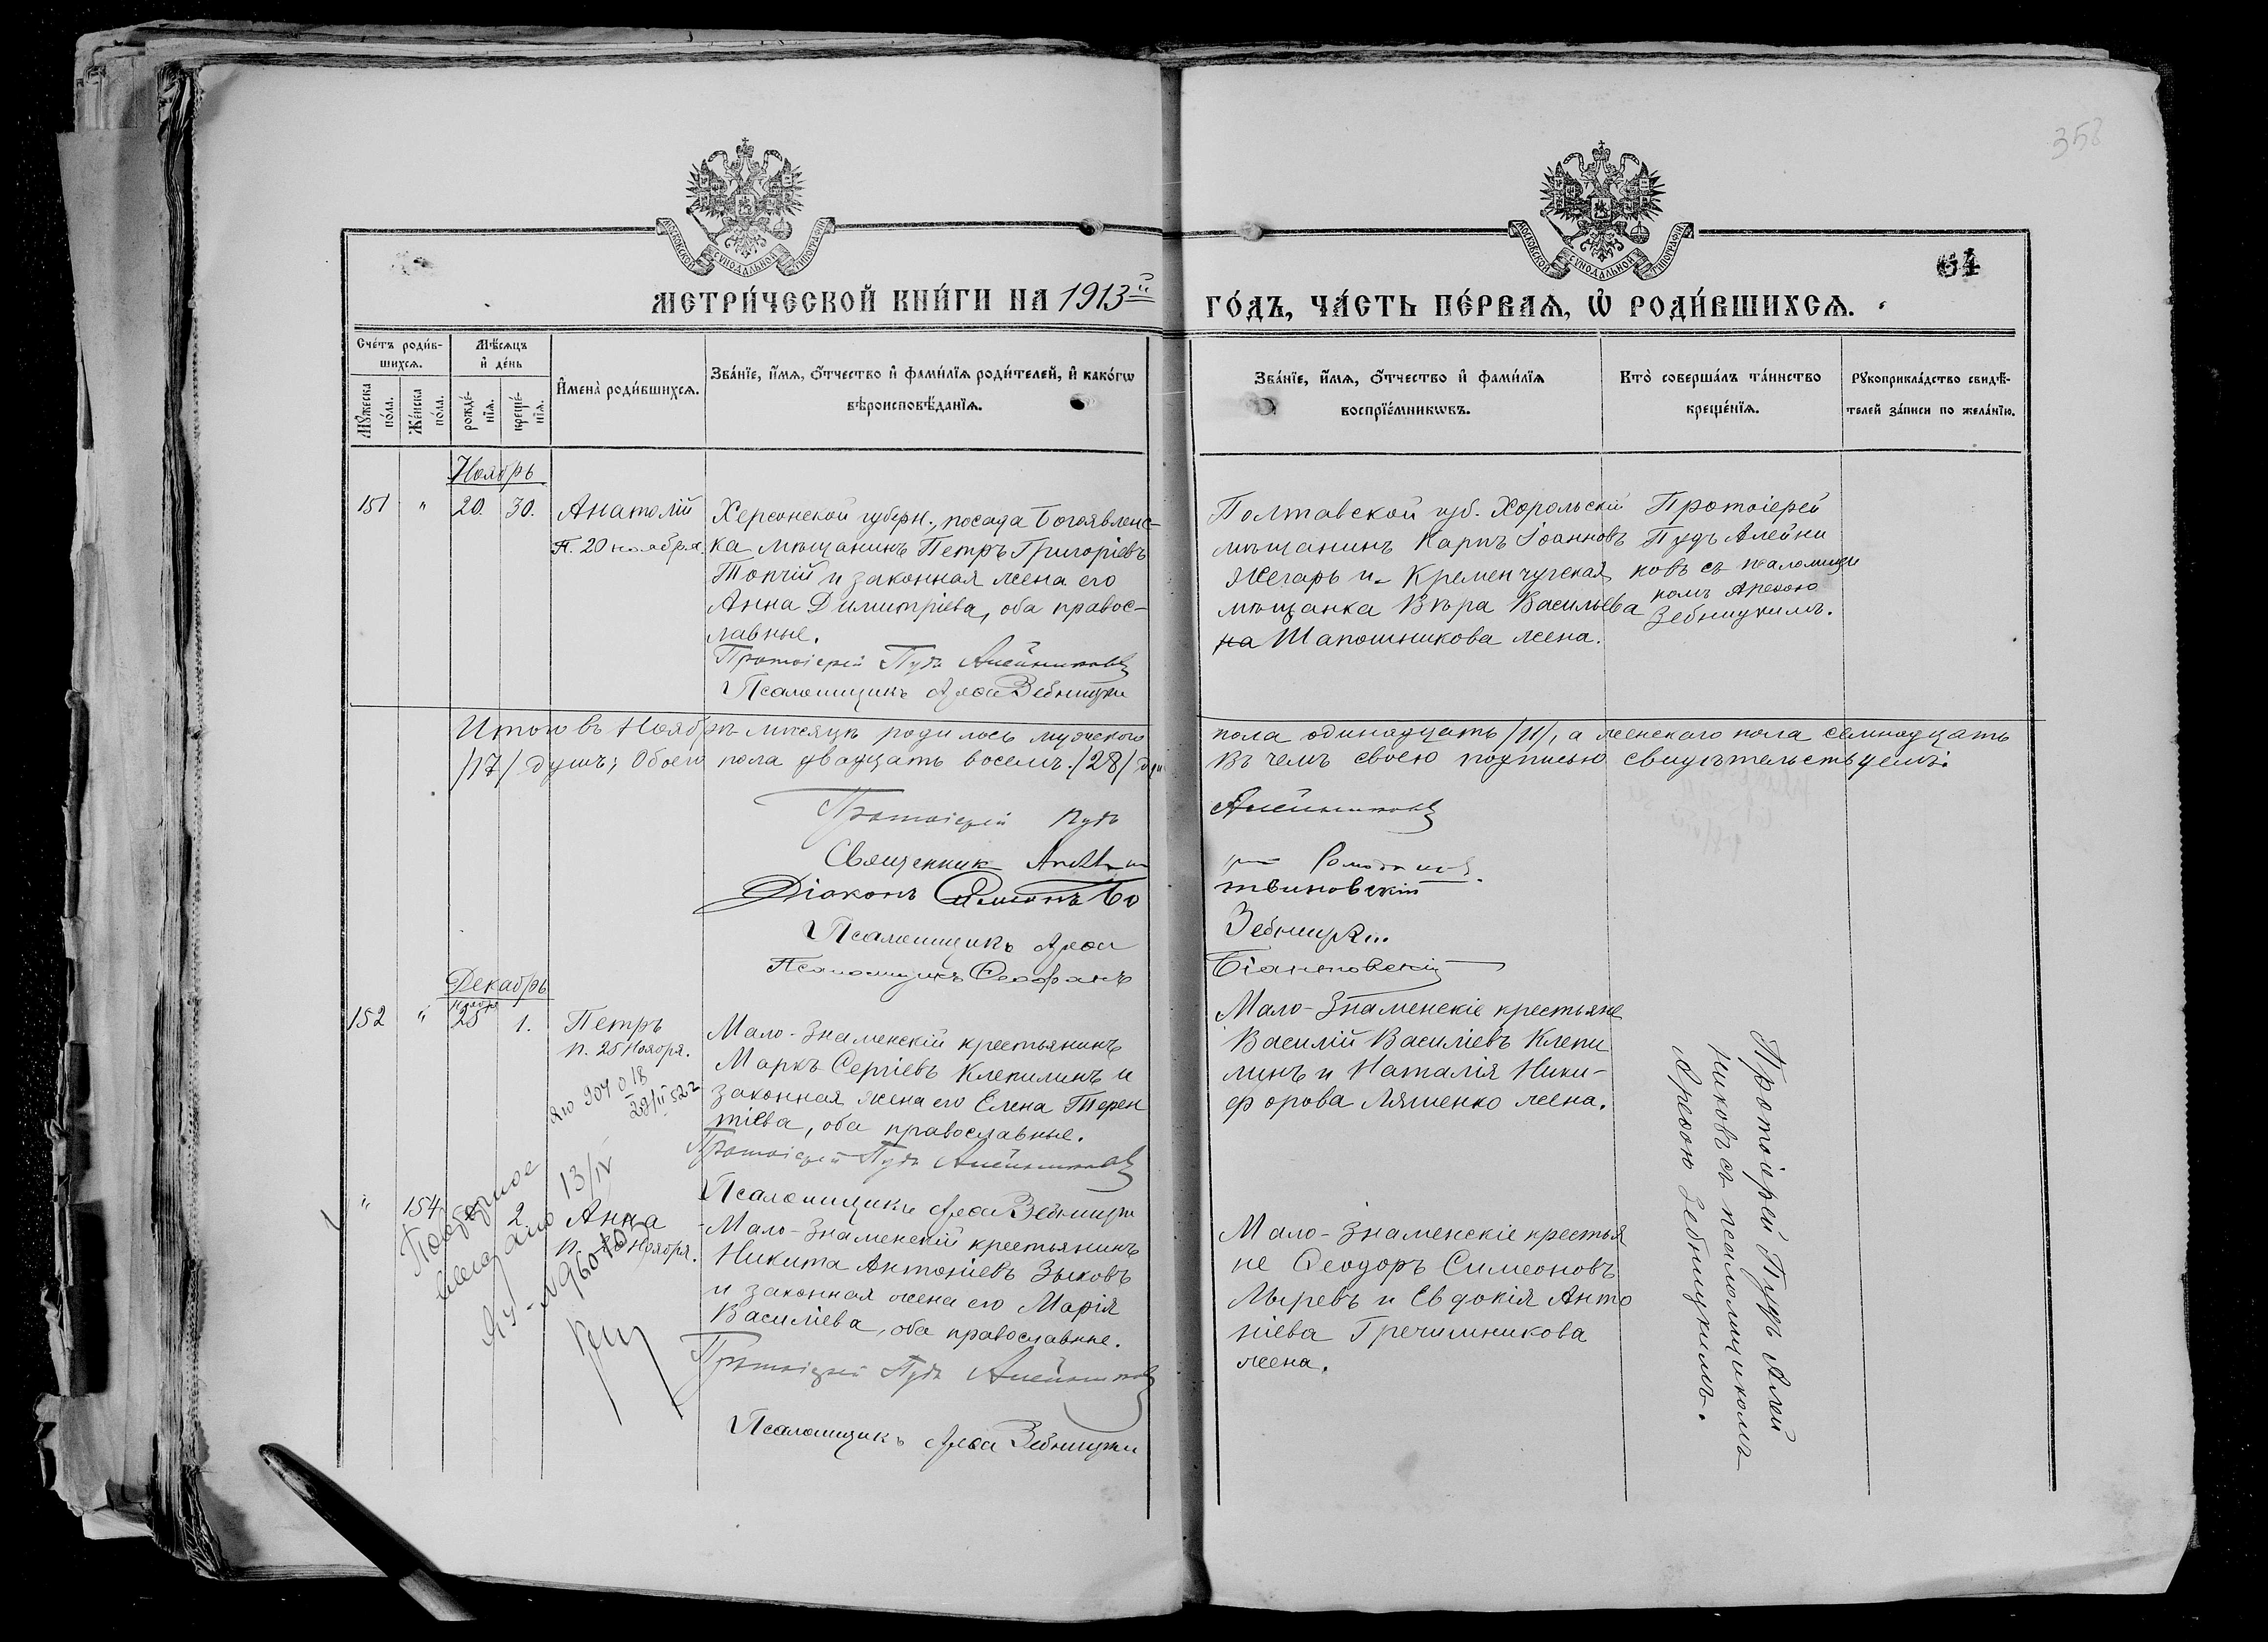 358
МОСКОВСКОЙ СУНОДАЛЬНОЙ ТИПОГРАФІИ
МОСКОВСКОЙ СУНОДАЛЬНОЙ ТИПОГРАФІИ
64
МЕТРИ́ЧЕСКОЙ КНИ́ГИ НА 1913 й
ГО́ДЪ, ЧА́СТЬ ПЕ́РВАѦ, Ѡ РОДИ́ВШИХСѦ.
Сче́тъ роди́в-
шихсѧ.
Мꙋ́жеска по́ла.
Же́нска по́ла.
Мѣ́сѧцъ
и де́нь
рожде́-
нїѧ.
креще́-
нїѧ.
Имена̀ роди́вшихсѧ.
Зва́нїе, и́мѧ, о́тчество и фами́лїѧ роди́телей, и како́гѡ
вѣроисповѣ́данїѧ.
Зва́нїе, и́мѧ, о́тчество и фами́лїѧ
воспрїе́мникѡвъ.
Кто̀ соверша́лъ та́инство
креще́нїѧ.
Рꙋкоприкла́дство свидѣ́-
телей за́писи по жела́нїю.
Ноябрь
151 " 20. 30. Анатолій
п. 20 ноября.
Херсонской губерн., посада Богоявленс-
ка мѣщанинъ Петръ Григоріевъ
Топчій и законная жена его
Анна Димитріева, оба правос-
лавные.
Протоіерей Пудъ Алейниковъ
Псаломщикъ Арефа Зебницкій
Полтавской губ. Хорольскій
мѣщанинъ Карпъ Іоанновъ
Жегарь и Кременчугская
мѣщанка Вѣра Васильева
на Шапошникова жена.
Протоіерей
Пудъ Алейни
ковъ съ псаломщи
комъ Арефою
Зебницкимъ.
Итого въ Ноябрѣ мѣсяцѣ родилось мужескаго пола одинадцать /11/, а женскаго пола семнадцать
/17/ душъ; Обоего пола двадцать восемь. /28/ душ Въ чемъ своею подписью свидѣтельствуемъ:
Протоіерей Пудъ Алейниковъ
Священник
Діаконъ Симеонъ Бо твиновскій
Псаломщикъ Арефа Зебницкій
Псаломщикъ Ѳеофанъ Біантовскій
Декабрь
152 " Ноябр 25 1. Петръ
п. 25 Ноября.
Мало-Знаменскій крестьянинъ
Маркъ Сергіевъ Клепилинъ и
законная жена его Елена Терен
тіева, оба православные.
Протоіерей Пудъ Алейниковъ
Псаломщикъ Арефа Зебницкій
Мало-Знаменскіе крестьяне
Василій Василіевъ Клепи
линъ и Наталія Ники-
форова Ляшенко жена.
Протоіерей Пудъ Алей
никовъ съ псаломщикомъ
Арефою Зебницкимъ.
13/IV
" 154 2 Анна
Ноября.
Мало-Знаменскій крестьянинъ
Никита Антоніевъ Зыковъ
и законная жена его Марія
Василіева, оба православные.
Протоіерей Пудъ Алейниковъ
Псаломщикъ Арефа Зебницкій
Мало-Знаменскіе крестья
не Ѳеодоръ Симеоновъ
Мыревъ и Евдокія Анто
ніева Гречишникова
жена.